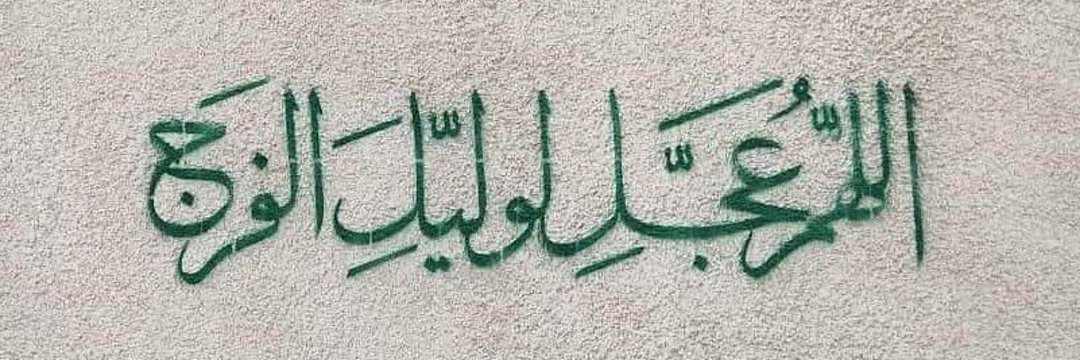 اللّٰهُمَّ عَجِّلْ لِوَلِيِّكَ الْفَرَج